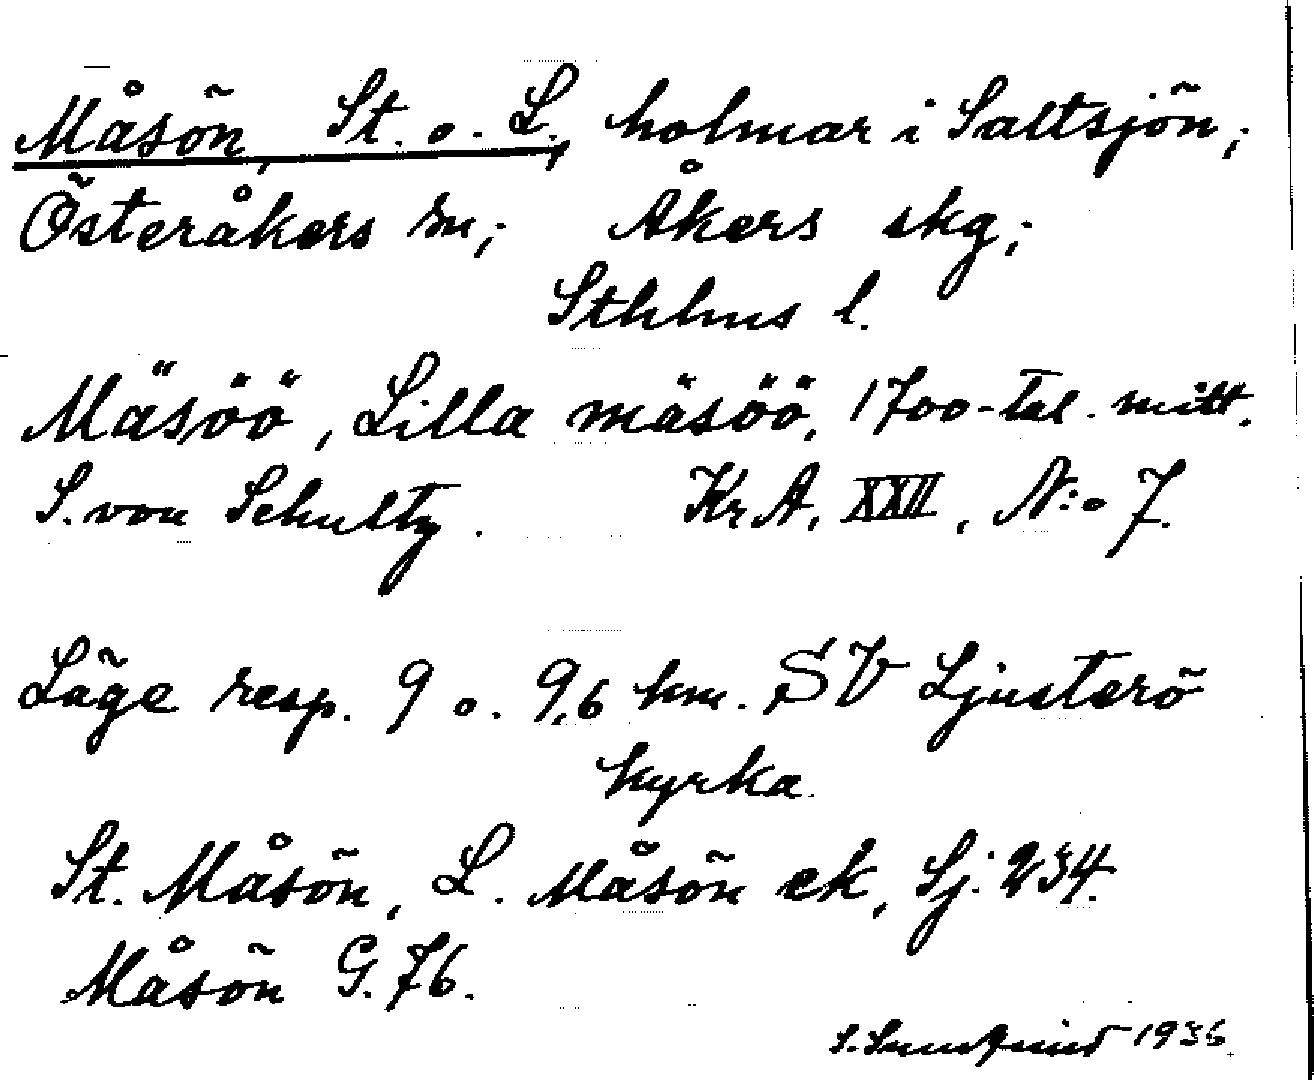 Måsön, St. o. L., holmar i Saltsjön;
Österåkers sn; Åkers skg;
Sthlms l.
Mäsöö, Lilla mäsöö, 1700-tal. mitt.
S. von Schultz. Kr A, XXII, N:o 7.
Läge resp. 9 o. 9,6 km. SV Ljusterö
kyrka.
St. Måsön, L. Måsön ek, Sj. 234.
Måsön G. 76.
1936